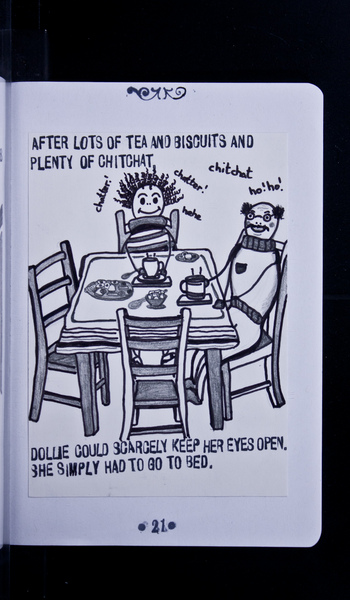 AFTER LOTS OF TEA AND BISCUITS AND
PLENTY OF CHITCHAT,
chatter!
chatter!
chitchat
ho!ho!
hehe
DOLLIE COULD SCARCELY KEEP HER EYES OPEN.
SHE SIMPLY HAD TO GO TO BED.
21